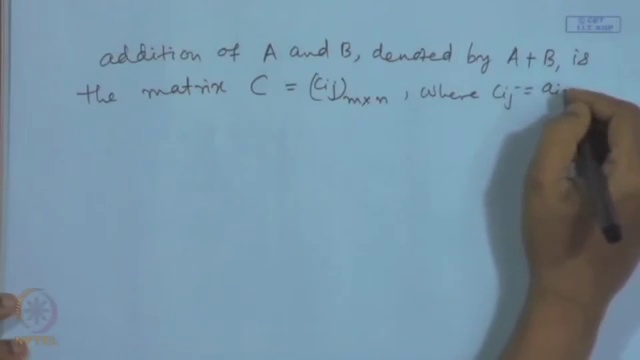 © CET
I.I.T. KGP
addition of A and B, denoted by A + B, is
the matrix C = (cij)m×n, where cij = ai
NPTEL